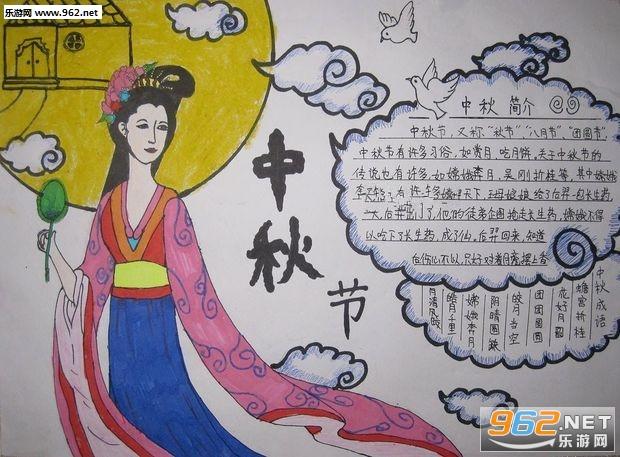 乐游网
www.962.net
中秋节
中秋简介
中秋节，又称"秋节""八月节""团圆节"，
中秋节有许多习俗，如赏月、吃月饼，关于中秋节的
传说也有许多，如嫦娥奔月，吴刚折桂等，其中嫦娥
有许多 天下，王母娘娘给了后羿一包长生药
一天，后羿出门了，他的徒弟企图抢走长生药，嫦娥不得
以吃下了长生药，成了仙，后羿回来，知道
后伤心不以，只好对着月亮摆上香
中秋成语
蟾宫折桂
花好月圆
团团圆圆
皎月当空
阴晴圆缺
嫦娥奔月
皓月千里
月清风皎
962.NET
乐游网